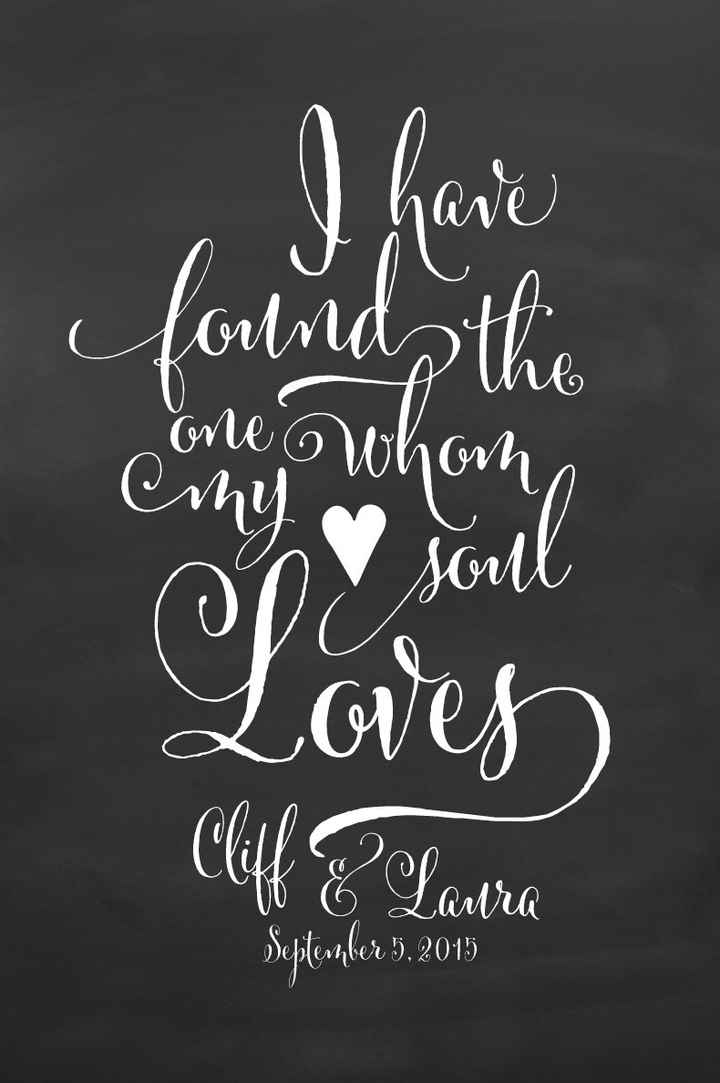 I have
found the
one whom
my soul
Loves
Cliff & Laura
September 5, 2015